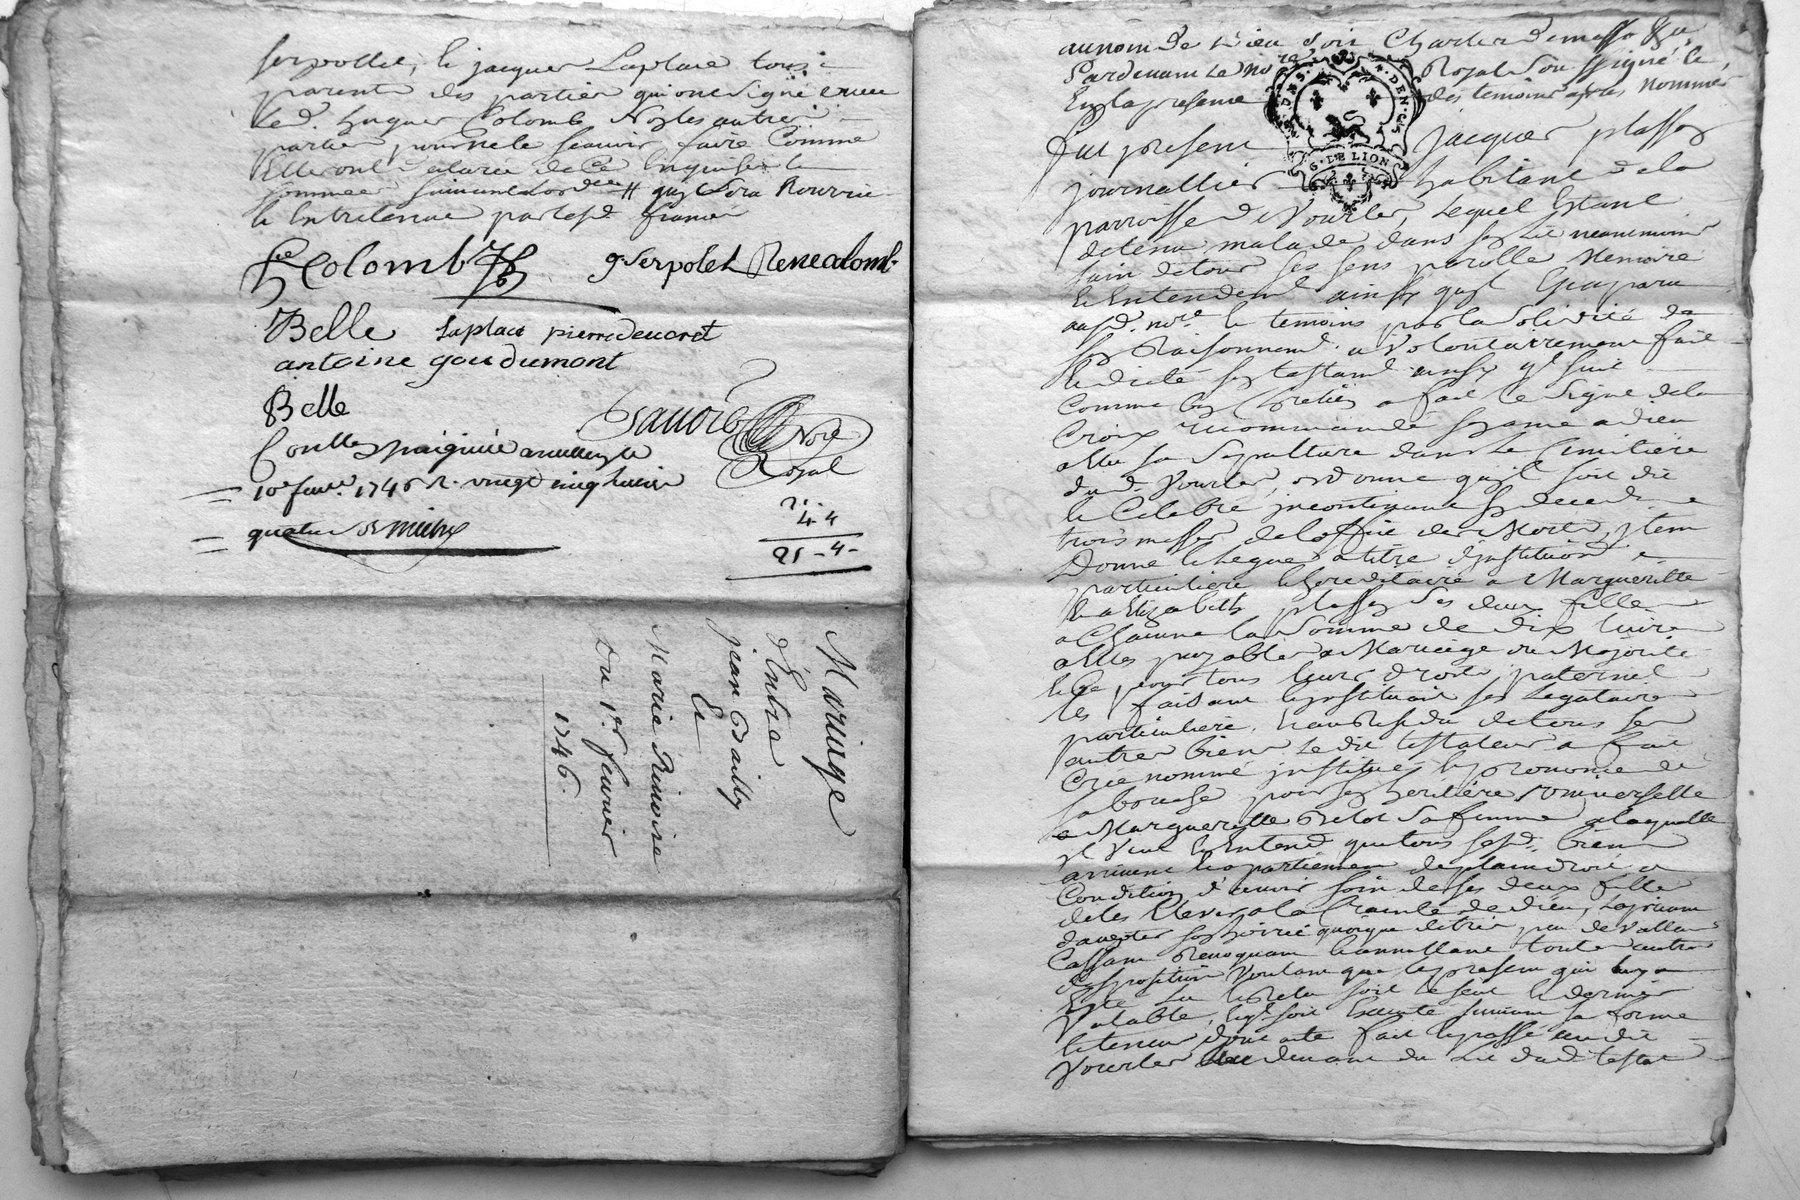 Serpollet, & jacques Laplace tous
parents des parties qui ont signé avec
led. hugues Colomb Non les autres
parties pour ne le sçavoir faire Comme
Elles ont declaré de Ce Enquises &
sommées suivant Lord.ce # quil sera Nourrie
& Entretenue par lesd. francs
Colomb
g Serpolet Rene colomb
Belle laplace pierre deucret
antoine goudumont
Belle
Savoie Nore
Royal
10e feuv. 1746 R. vingt cinq livres
quatre s
2..
4.4
25-4-
Mariage
d'Entre
jean Dailly
Et
Marie Rimoire
Du 1er feuvrier
1746.
au nom de Dieu soit
Pardevant Le Nore Royal sou signé &
En la presence des temoins apres nommés
fut present jacques plasson
G. DE LION
journallier habitant de la
parroisse de Vourles, Lequel Estant
detenu malade dans son Lit neanmoins
sain de tous ses sens parolle Memoire
& Entendemt ainsy quil Est aparu
aud. nore & temoins par la solidité de
son Raisonnemt. a Volontairement fait
& dicté son testamt ainsy ql suit
Comme bon Chretien a fait le signe de la
Croix recommandé son ame a dieu
Eslu sa sepulture dans Le Cimetiere
dud. Vourles, ordonne quil soit dit
& Celebré incontinant son deceds
trois messes de loffice des Morts, jtem
Donne & legue a titre d'institution
particuliere & hereditaire a Margueritte
& a Elizabeth plasson ses deux filles
a Chacune la somme de dix livres
a Elles payable a Mariage ou Majorité
& Ce pour tous leurs droits paternel
les faisant & instituant ses Legataires
particuliere. & au Residu de tous ses
autres biens Le dit testateur a fait
Cree nommé institué & prononcé de
sa bouche pour son heritiere Universelle
Margueritte Belot sa femme a laquelle
il Veut & Entend que tous sesd. biens
arrivent & apartiennent de plain droit, a
Condition d'avoir soin de ses deux filles
de les Elever a la Crainte de dieu, Laprivant
Cassant Revoquant & annullant toutes autres
dispositions Voulant que la presente qui luy a
Esté Lu & Relu soit la seule & derniere
Valable, & quil soit Executé suivant sa forme
& teneur dont acte fait & passé audit
Vourles au devant du Lit dud. testat